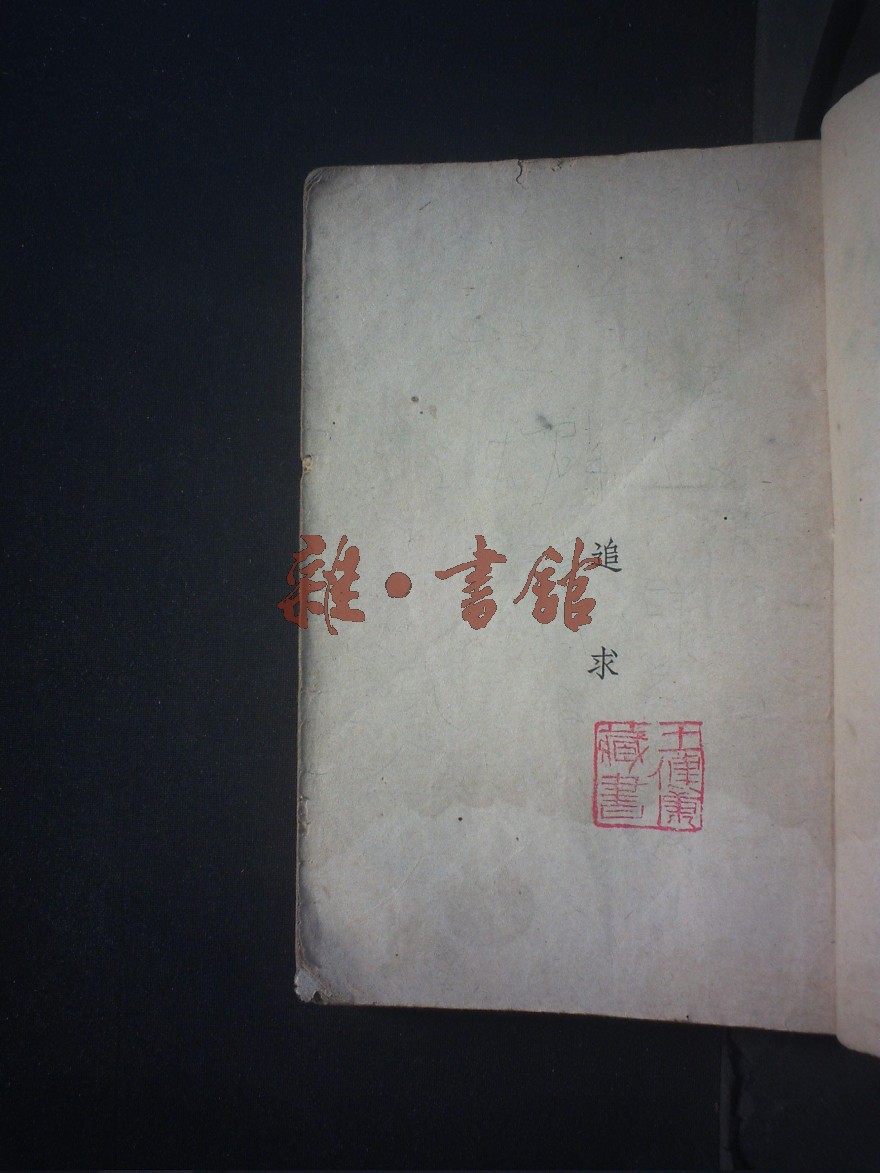 追求
雜·書館
王健康
藏書